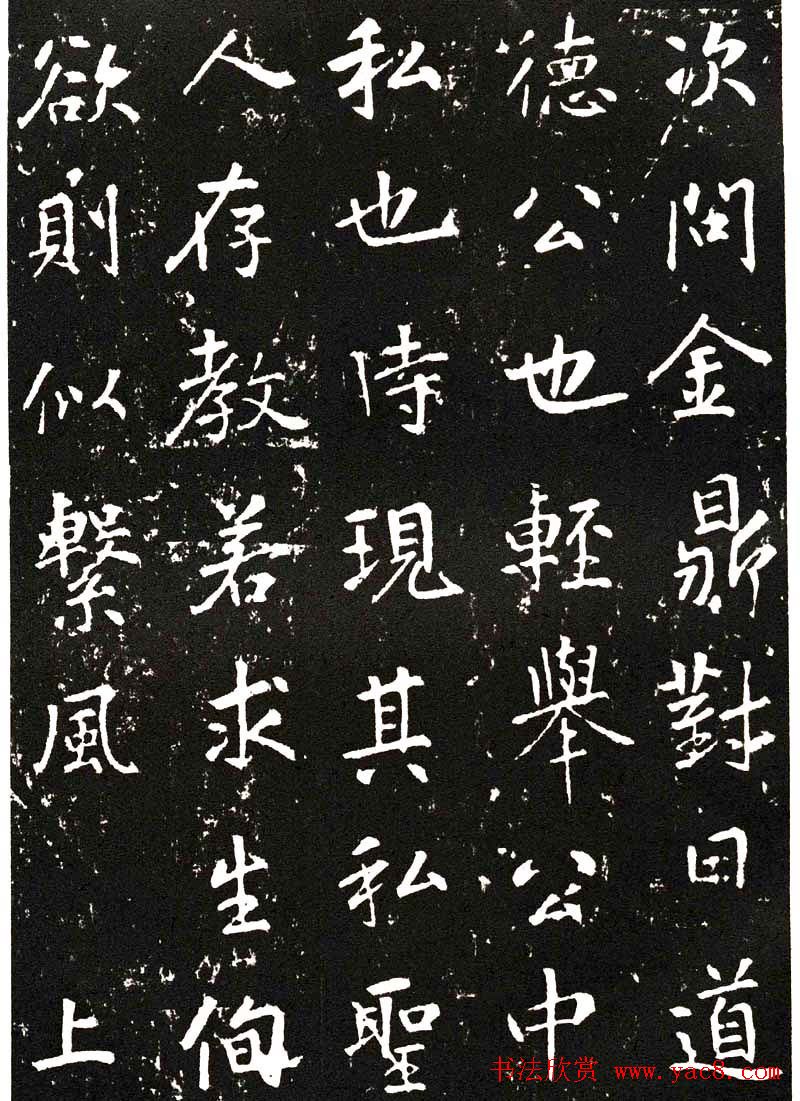 次問金鼎對曰道
德公也輕舉公中
私也時現其私聖
人存教若求生侚
欲則似繫風　上
书法欣赏 www.yac8.com